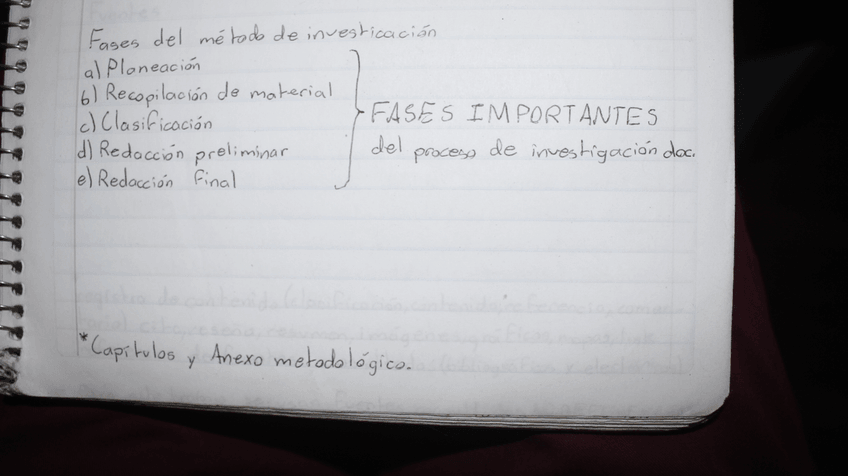 Fases del método de investicación
a) Planeación
b) Recopilación de material
c) Clasificación
d) Redacción preliminar
e) Redacción final
FASES IMPORTANTES
del proceso de investigación doc.
*Capítulos y Anexo metodológico.